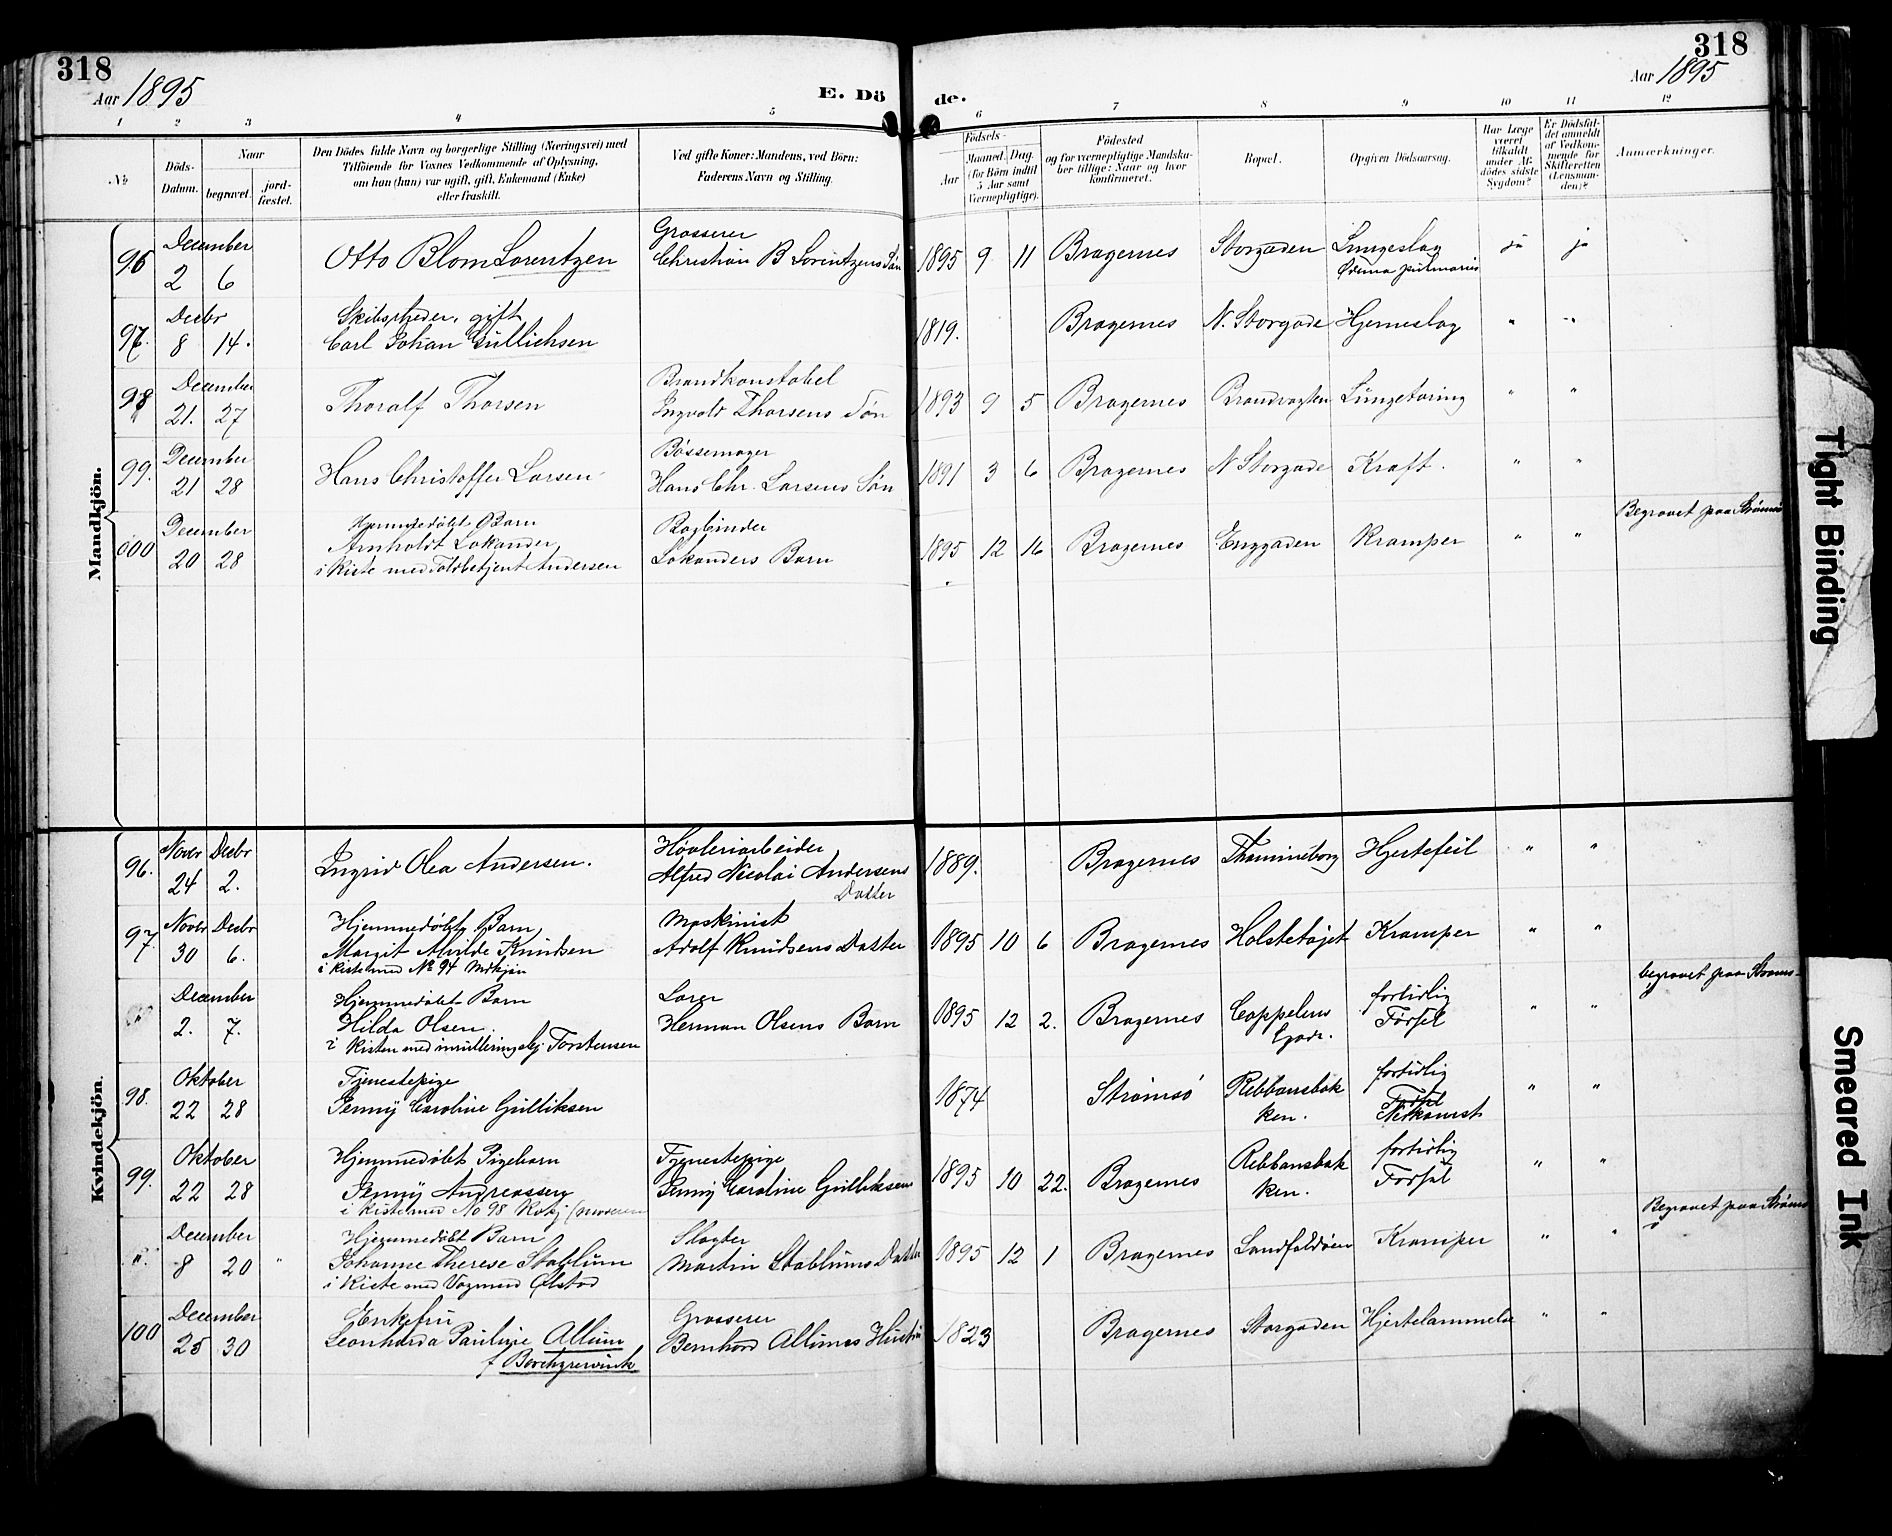 318
Aar 1895
E. Dö
de.
318
Aar 1895
1 2 3 4 5 6 7 8 9 10 11 12
No
Döds-
Datum.
Naar
begravet.
jord-
fæstet.
Den Dödes fulde Navn og borgerlige Stilling (Næringsvei) med
Tilföiende for Voxnes Vedkommende af Oplysning,
om han (hun) var ugift, gift, Enkemand (Enke)
eller fraskilt.
Ved gifte Koner: Mandens, ved Börn:
Faderens Navn og Stilling.
Födsels-
Aar
Maaned. Dag.
(for Börn indtil
5 Aar samt
Værnepligtige).
Födested
og for værnepligtige Mandska-
ber tillige: Naar og hvor
konfirmeret.
Bopæl.
Opgiven Dödsaarsag.
Har Læge
været
tilkaldt
under Af-
dödes sidste
Sygdom?
Er Dödsfal-
det anmeldt
af Vedkom-
mende for
Skifteretten
(Lensman-
den)?
Anmærkninger.
Mandkjön.
96 December 2 6 Otto Blom Lorentzen Grosserer
Christian B Lorentzens Søn 1895 9 11 Bragernes Storgaden Lungeslag
Ødema pulmonis ja ja
97. Decbr 8 14. Skibsrheder, gift
Carl Johan Gullichsen 1819. Bragernes N. Storgade Hjerneslag " "
98 December 21. 27 Thoralf Thorsen Brandkonstabel
Ingvald Thorsens Søn 1893 9 5 Bragernes Brandvagten Lungetæring " "
99. December 21 28 Hans Christoffer Larsen Bøssemager
Hans Chr. Larsens Søn 1891 3 6 Bragernes N Storgade Kræft. " "
100 December 20 28 Hjemmedøbt Barn
Arnholdt Lokander
i Kiste med Toldbetjent Andersen Bogbinder
Lokanders Barn 1895 12 16 Bragernes Enggaden Kramper " " Begravet paa Strømsø
Kvindekjön.
96. Novbr 24 Decbr 2. Ingrid Olea Andersen. Høvleriarbeider
Alfred Nicolai Andersens
Datter 1889. Bragernes Thamineborg Hjertefeil " "
97. Novbr 30 Decbr 6. Hjemmedøbt Barn
Margit Alvilde Knudsen
i Kiste med No 94 Mdkjøn Maskinist
Adolf Knudsens Datter 1895 10 6 Bragernes Holstetøjet Kramper " "
December 2. 7. Hjemmedøbt Barn
Hilda Olsen.
i Kisten med Torstensen
Herman Olsens Barn 1895 12 2. Bragernes Cappelens
fortidlig
Førsel " " begravet paa Strøms-
98. Oktober 22 28 Tjenestepige
Jenny Caroline Gulliksen 1874 Strømsø Rebbansbak
ken. fortidlig
Førsel
Nedkomst " "
99. Oktober 22 28 Hjemmedøbt Pigebarn
Jenny Andreassen
i Kiste med No 98 Kvkj (moderen Tjenestepige
Jenny Caroline Gulliksen 1895 10 22. Bragernes Rebbansbak
ken. fortidlig
Førsel " "
" December 8 20 " Hjemmedøbt Barn
Johanne Therese Stablum
i Kiste med Vognmd Ølstad Slagter
Martin Stablums Datter 1895 12 1 Bragernes Landfaldøen Kramper " " Begravet paa Strøms
ø
100 December 25 30 Enkefru
Leonharda Pauline Allum
f Borchgrevink Grosserer
Bernhard Allums Hustru 1823 Bragernes Storgaden Hjertelammelse " "
Tight Binding
Smeared Ink